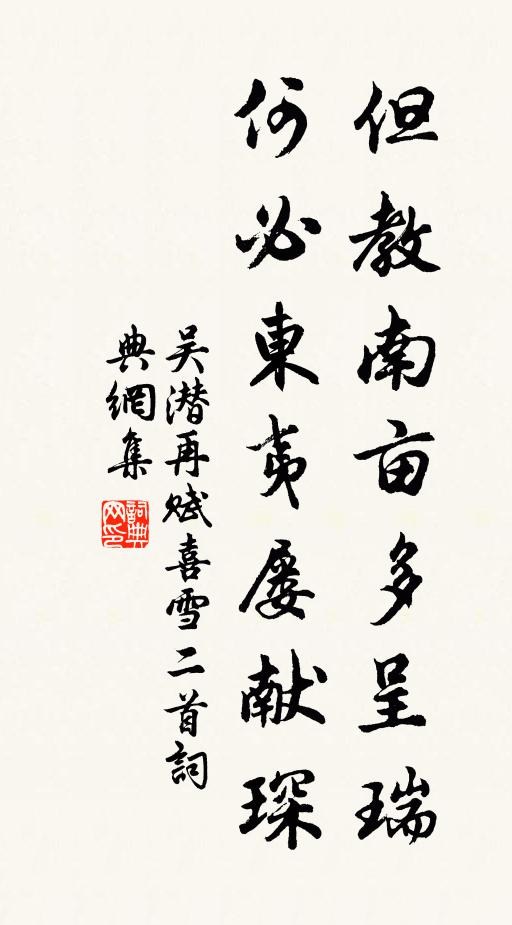 但教南亩多呈瑞
何必東夷屡献琛
吴潜再赋喜雪二首詞
典網集
詞典
网印